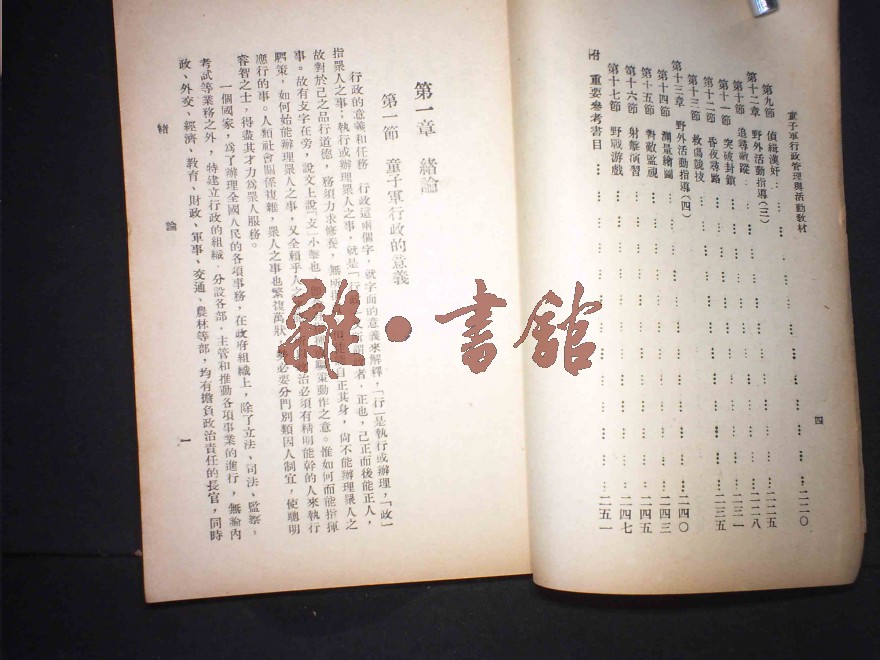 童子軍行政管理與活動教材
四
第九節 偵緝漢奸 二二〇
第十二章 野外活動指導(三) 二二五
第十節 追尋敵蹤 二二八
第十一節 突破封鎖 二三一
第十二節 昏夜尋路 二三五
第十三節 救傷競技
第十三章 野外活動指導(四) 二四〇
第十四節 測量繪圖 二四三
第十五節 對敵監視 二四五
第十六節 射擊演習 二四七
第十七節 野戰游戲 二五一
附 重要參考書目
第一章 緒論
第一節 童子軍行政的意義
行政的意義和任務 行政這兩個字,就字面的意義來解釋,「行」是執行或辦理,「政」
指眾人之事;執行或辦理眾人之事,就是「行政」
者,正也,己正而後能正人,
故對於己之品行道德,務須力求修養,無
自正其身,尙不能辦理眾人之
事。故有支字在旁,說文上說「攴」小擊也
策動作之意。惟如何而能指揮
驅策,如何始能辦理眾人之事,又全賴乎人之
政治必須有精明能幹的人來執行
應行的事。人類社會關係複雜,眾人之事也繁複萬狀
必要分門別類因人制宜,使聰明
睿智之士,得盡其才力爲眾人服務。
一個國家,爲了辦理全國人民的各項事務,在政府組織上,除了立法、司法、監察、
考試等業務之外,特建立行政的組織,分設各部,主管和推動各項事業的進行,無論內
政、外交、經濟、教育、財政、軍事、交通、農林等部,均有擔負政治責任的長官,同時
緒 論
一
雜·書館